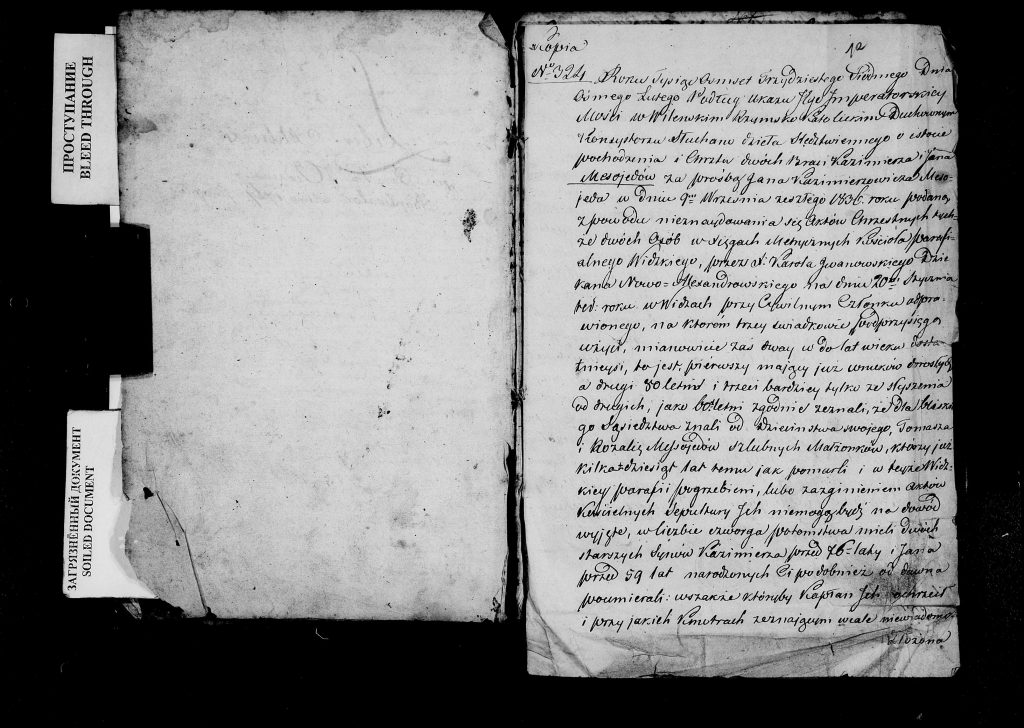 ПРОСТУПАНИЕ
BLEED THROUGH
ЗАГРЯЗНЁННЫЙ ДОКУМЕНТ
SOILED DOCUMENT
Kopia
12
No 324
Roku Tysiąc Osmset Trzydziestego Siodmego Dnia
Osmego Lutego Podług Ukazu Jego Imperatorskiey
Mości w Wilenskim Rzymsko Katolickim Duchownym
Konsystorzu Słuchano dzieła Sledztwiennego o istocie
pochodzenia i Chrztu dwóch Braci Kazimierza i Jana
Mesojedów za prośbą Jana Kazimierzowicza Meso-
jeda w dniu 9 Września zeszłego 1836 roku podaną,
z powodu nieznaydowania się Aktów Chrzestnych tych-
że dwóch Osób w Xięgach Metrycznych Kościoła parafi-
alnego Widzkiego, przez X. Karola Iwanowskiego Dzie-
kana Nowo-Alexandrowskiego na dniu 20 Stycznia
też. roku w Widzach przy Cywilnym Członku odpra-
wionego, na którem trzey świadkowie pod przysięgą
użyci, mianowicie zaś dway w do lat wieku
to jest, pierwszy mający już wnuków
a drugi 80 letni i trzeci bardziey tylko ze słyszenia
od drugich, jako 60 letni zgodnie zeznali, że dla blizkie
go Sąsiedztwa znali od dzieciństwa swojego, Tomasza
i Rozalię Mesojedów szlubnych Małżonków, którzy już
kilkadziesiąt lat temu jak pomarli i w teyże Widz-
kiey parafii pogrzebieni, lubo za zginieniem Aktów
Kościelnych Sepultury Ich niemogą bydź na dowód
wyjęte, w liczbie czworga potomstwa mieli dwóch
starszych Synów Kazimierza przed 76 laty i Jana
przed 59 lat narodzonych Ci podobnież od dawna
poumierali: wszakże któryby Kapłan Ich ochrzcił
i przy jakich Kmotrach zeznającym wcale niewiadomo
złożona